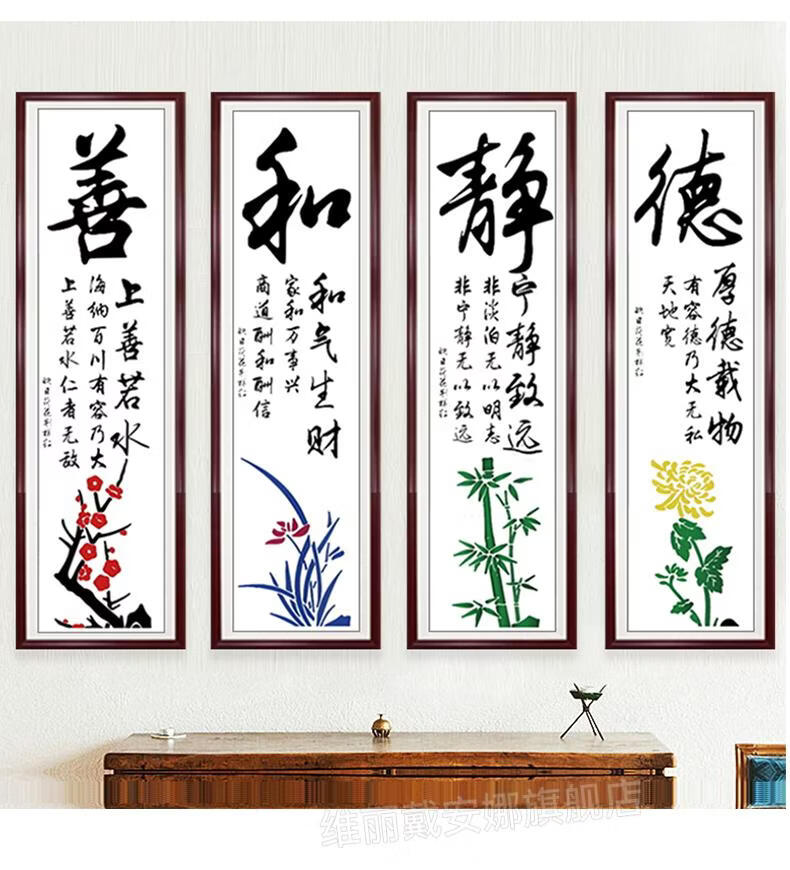 善
上善若水
海纳百川有容乃大
上善若水仁者无敌
和
和气生财
家和万事兴
商道酬和酬信
静
宁静致远
非淡泊无以明志
非宁静无以致远
德
厚德载物
有容德乃大无私
天地宽
维丽戴安娜旗舰店